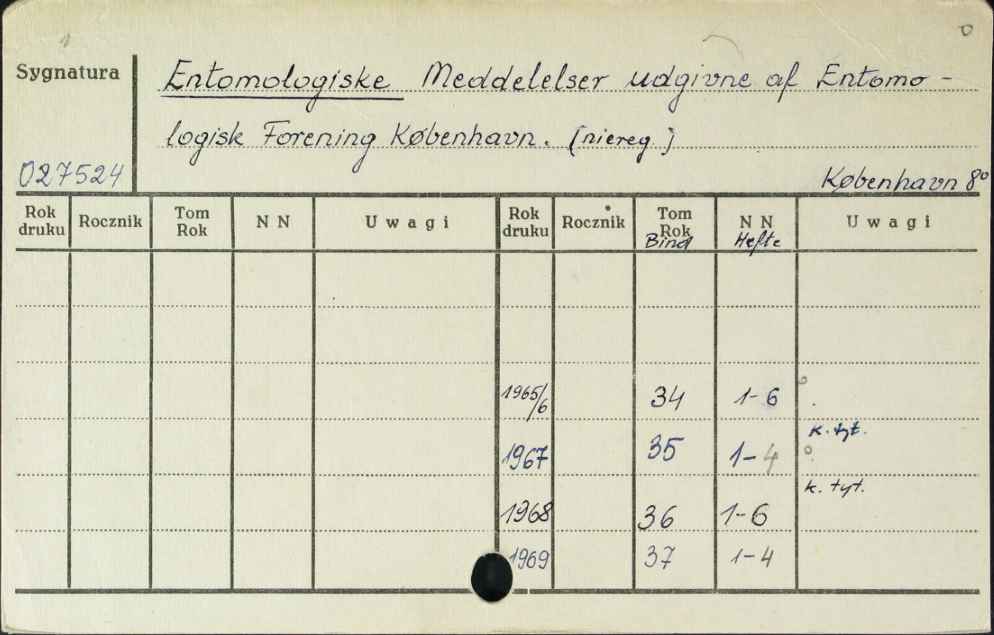 Sygnatura
Entomologiske Meddelelser udgivne af Entomo-
logisk Forening København. [niereg.]
027524
København 8°
Rok druku Rocznik Tom Rok N N Uwagi Rok druku Rocznik Tom Rok Bind N N Hefte Uwagi
1965/6 34 1-6
k. tyt.
1967 35 1-4
k. tyt.
1968 36 1-6
1969 37 1-4